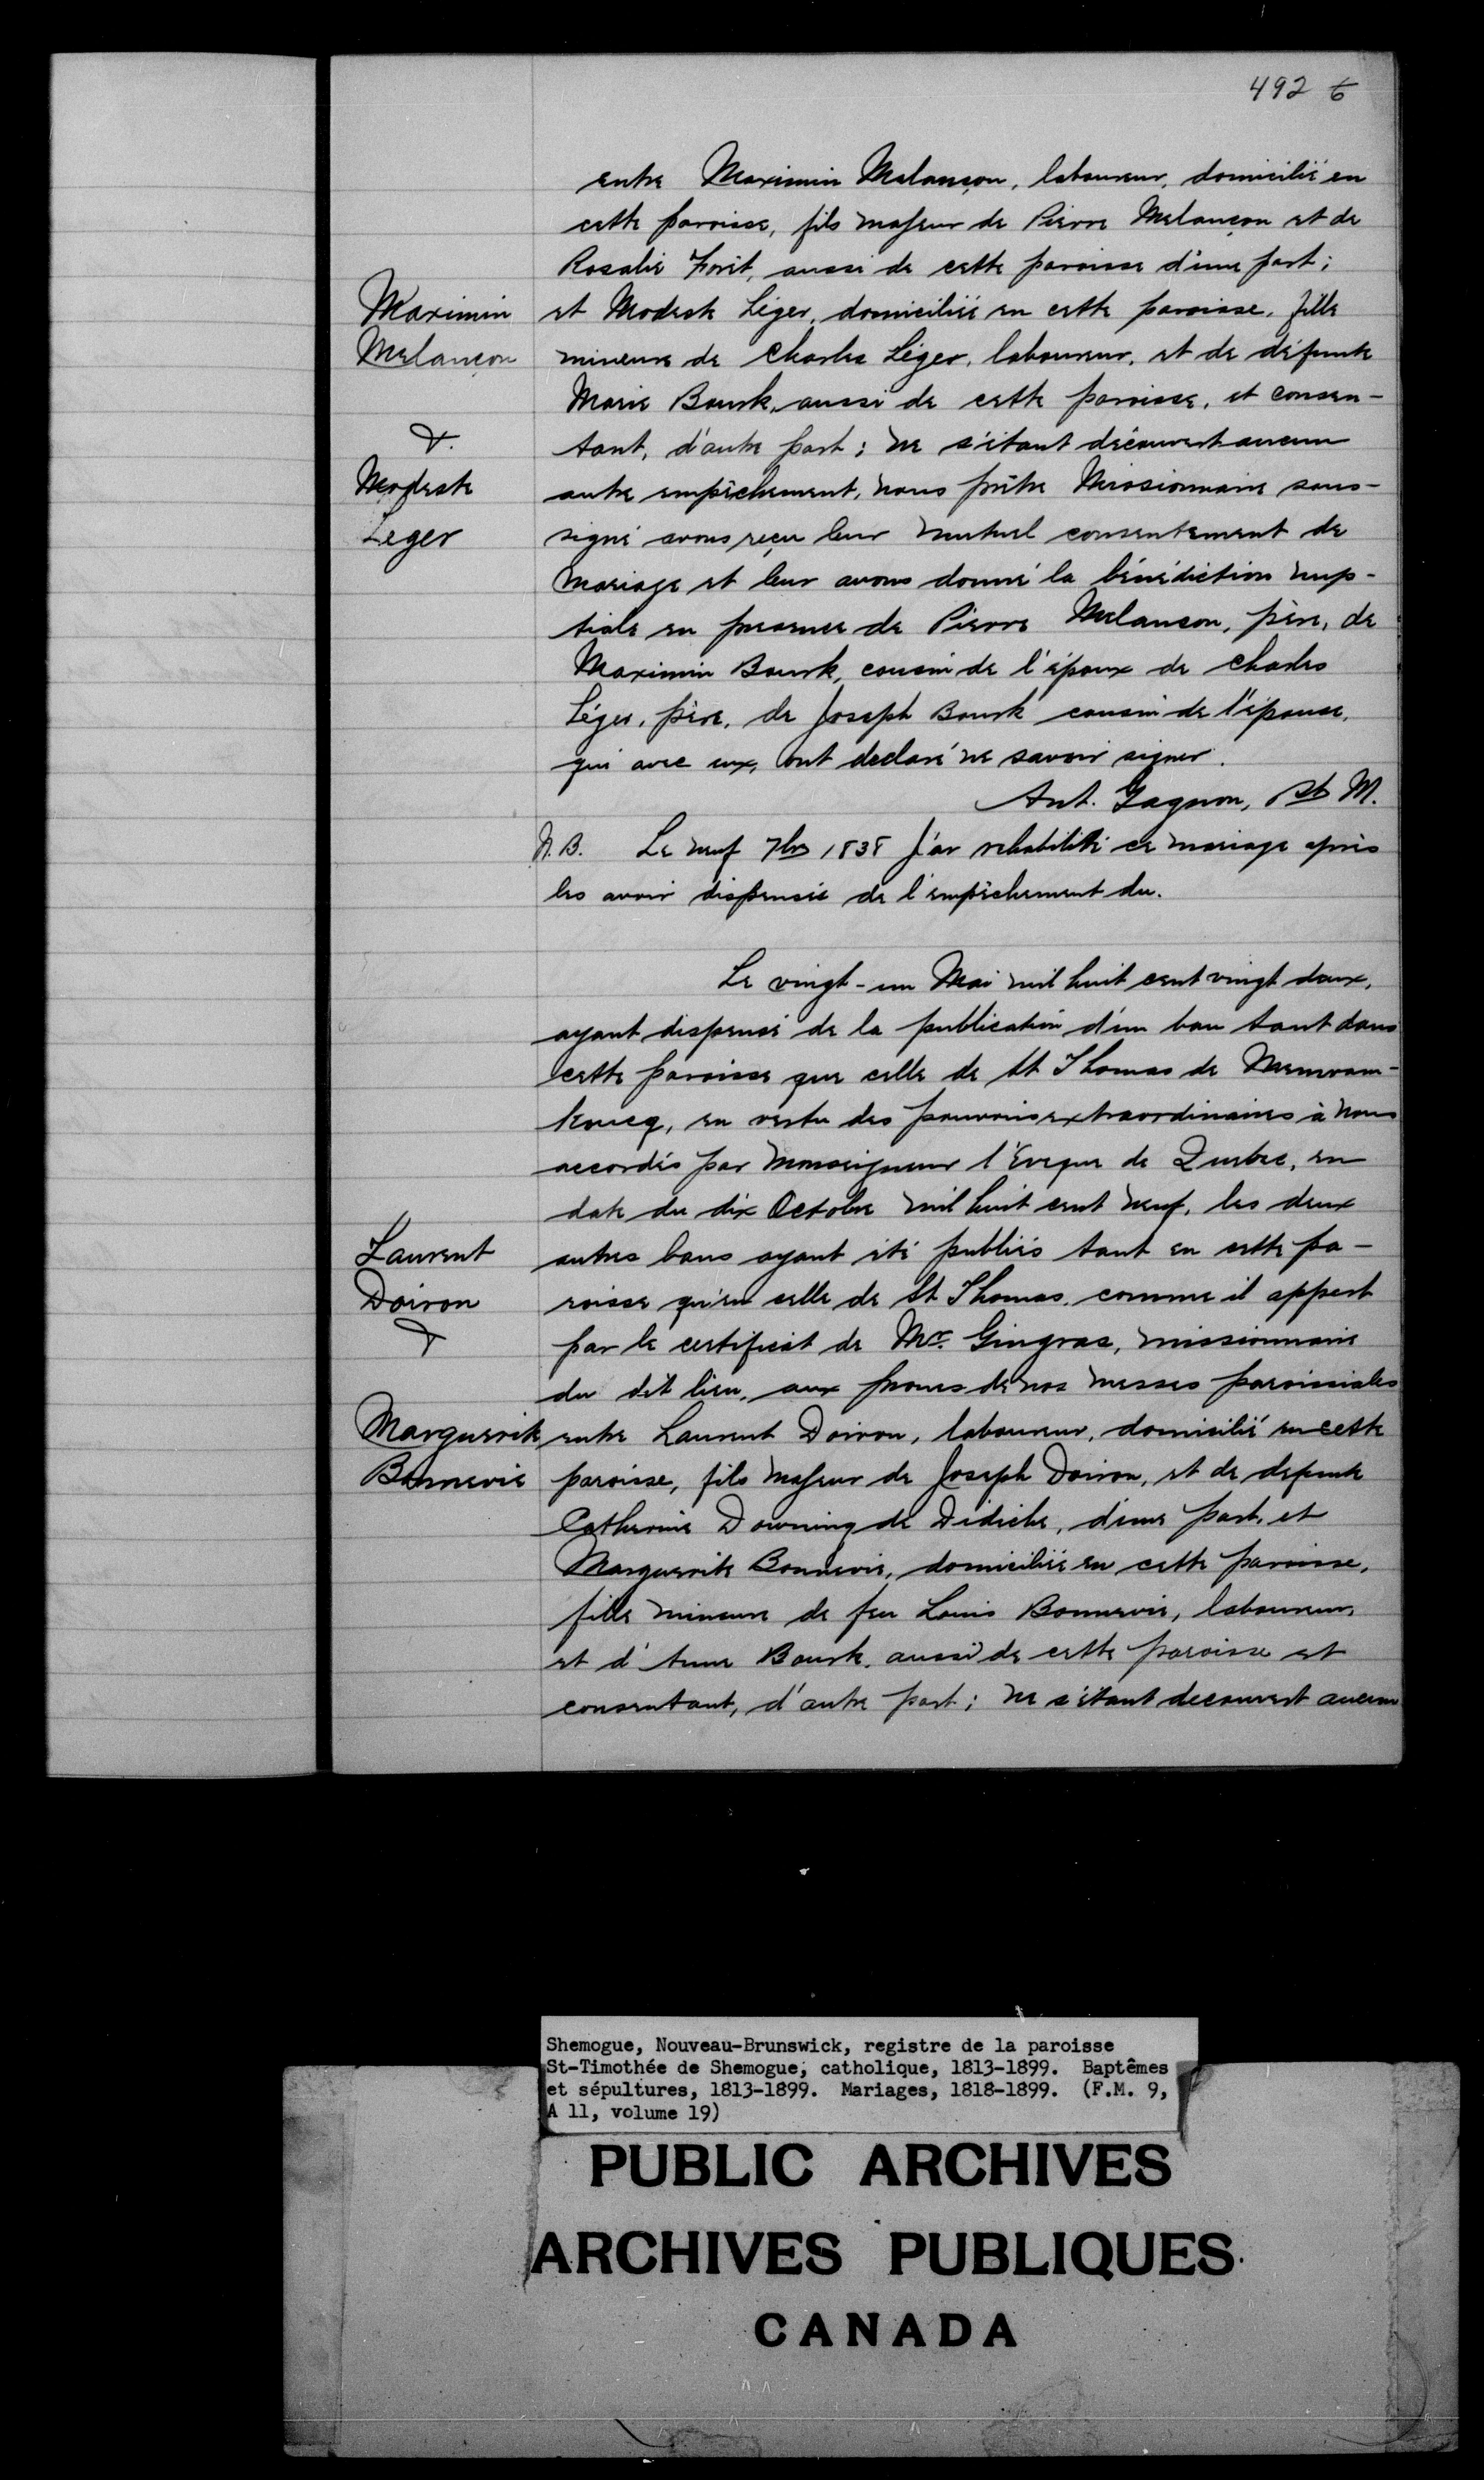 492 6
entre Maximin Melançon, laboureur, domicilié en
cette paroisse, fils majeur de Pierre Melançon et de
Rosalie Forêt, aussi de cette paroisse d'une part;
Maximin
Melançon
&
Modeste
Leger
et Modeste Léger, domiciliée en cette paroisse, fille
mineure de Charles Léger, laboureur, et de défunte
Marie Bourk, aussi de cette paroisse, et consen-
tant, d'autre part; ne s'étant découvert aucun
autre empêchement, nous prêtre Missionnaire sous-
signé avons reçu leur mutuel consentement de
mariage et leur avons donné la bénédiction nup-
tiale en presence de Pierre Melanson, père, de
Maximin Bourk, cousin de l'époux de Charles
Léger, père, de Joseph Bourk cousin de l'épouse,
qui avec eux, ont declaré ne savoir signer.
Ant. Gagnon, Ptr M.
N.B. Le neuf 7bre 1838 J'ai rehabilité ce mariage après
les avoir dispensés de l'empêchement du.
Le vingt-un Mai mil huit cent vingt deux,
ayant dispensé de la publication d'un ban tant dans
cette paroisse que celle de St Thomas de Memram-
koucq, en vertu des pouvoirs extraordinaires à nous
accordés par Monseigneur l'Eveque de Quebec, en
date du dix Octobre mil huit cent neuf, les deux
Laurent
Doiron
&
Marguerite
Bonnevie
autres bans ayant été publiés tant en cette pa-
roisse qu'en celle de St Thomas, comme il appert
par le certificat de Mr. Gingras, missionnaire
du dit lieu, aux prones de nos messes paroissiales
entre Laurent Doiron, laboureur, domicilié en cette
paroisse, fils majeur de Joseph Doiron, et de defunte
Catherine Downing de Didiche, d'une part, et
Marguerite Bonnevie, domiciliée en cette paroisse,
fille mineure de feu Louis Bonnevie, laboureur,
et d'Anne Bourk, aussi de cette paroisse et
consentant, d'autre part; ne s'étant decouvert aucun
Shemogue, Nouveau-Brunswick, registre de la paroisse
St-Timothée de Shemogue, catholique, 1813-1899. Baptêmes
et sépultures, 1813-1899. Mariages, 1818-1899. (F.M. 9,
A 11, volume 19)
PUBLIC ARCHIVES
ARCHIVES PUBLIQUES
CANADA